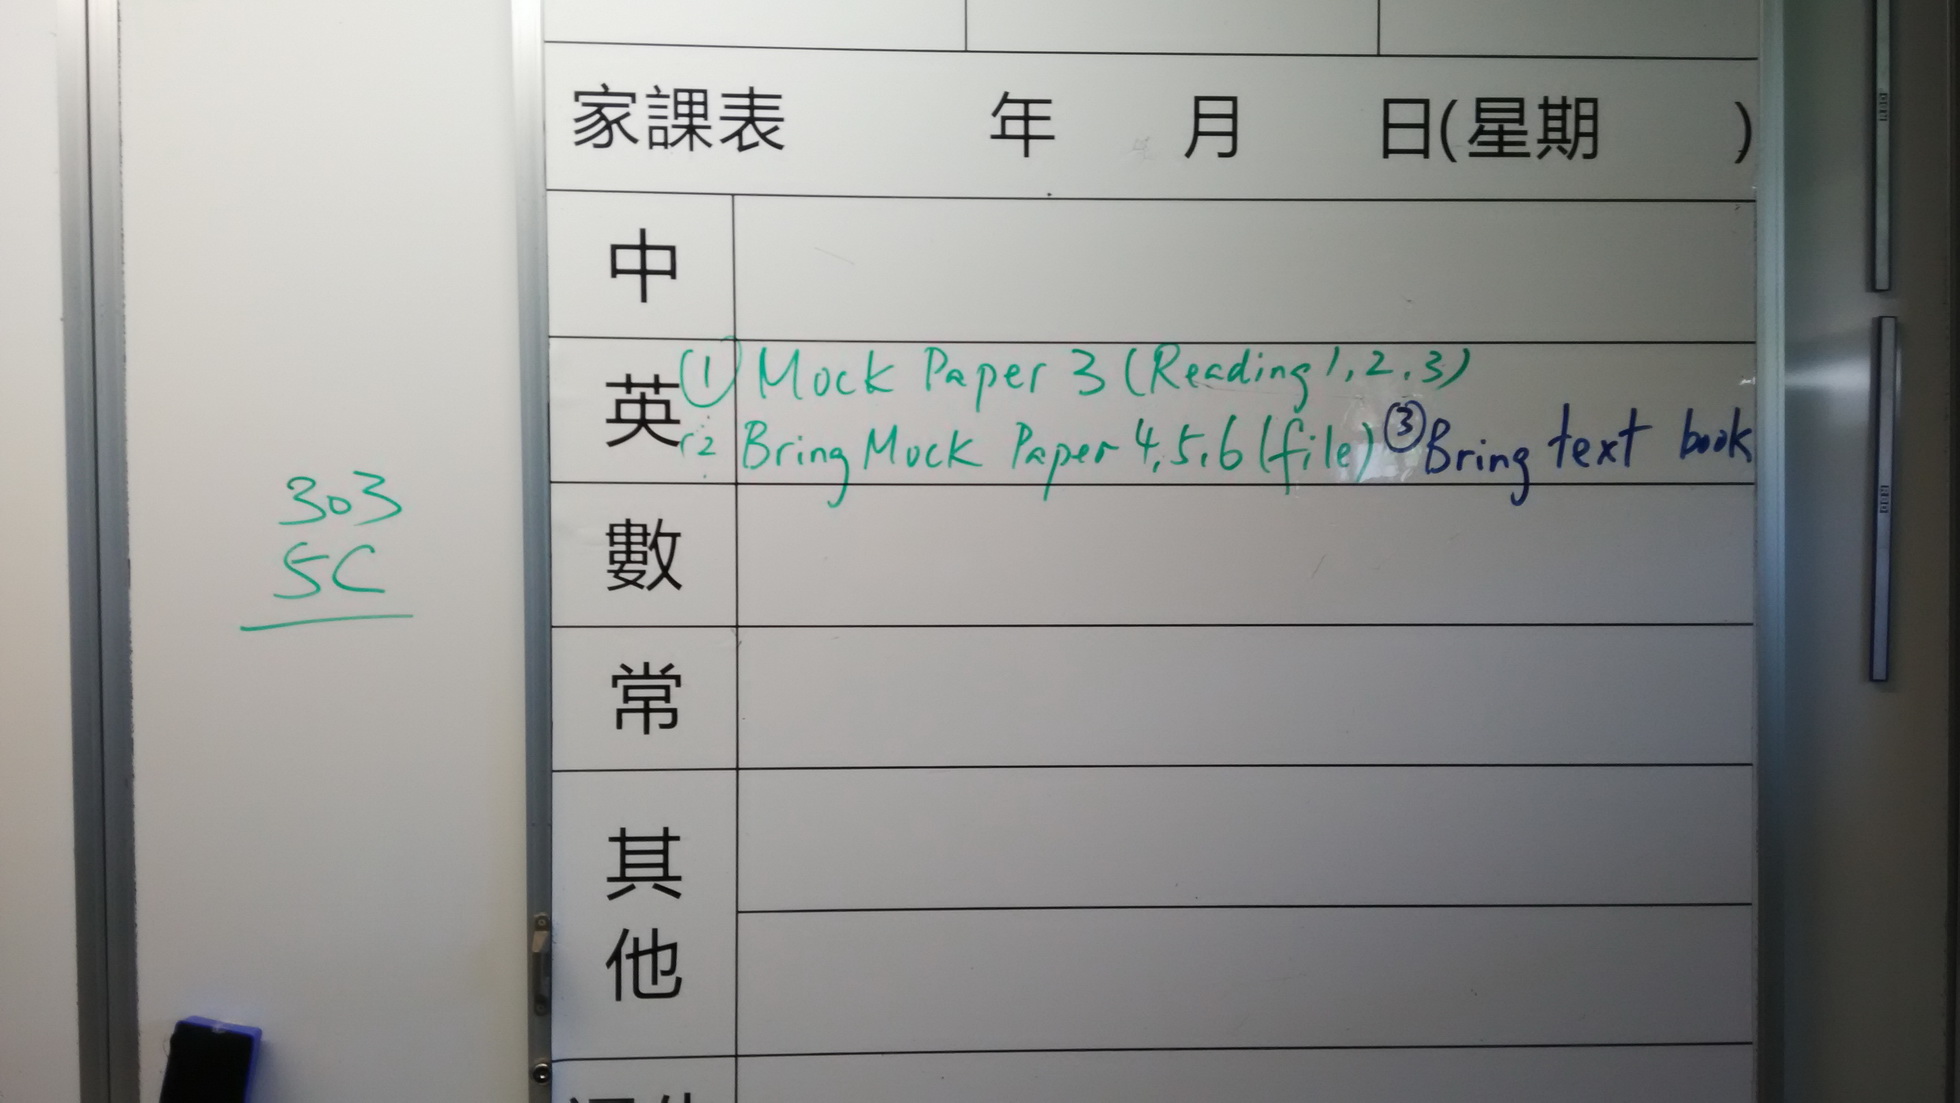 家課表 年 月 日(星期 )
中
英 ① Mock Paper 3 (Reading 1,2,3)
2 Bring Mock Paper 4,5,6 (file) ③ Bring text book
數
常
其
他
303
5C